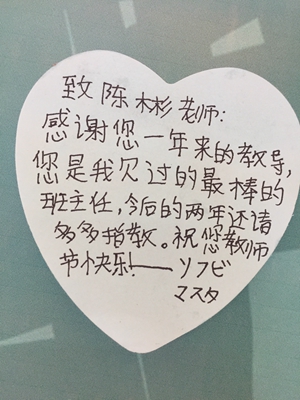 致陈彬老师:
感谢您一年来的教导,
您是我欠过的最棒的
班主任,今后的两年还请
多多指教。祝您教师
节快乐!——ソフビ
マスタ